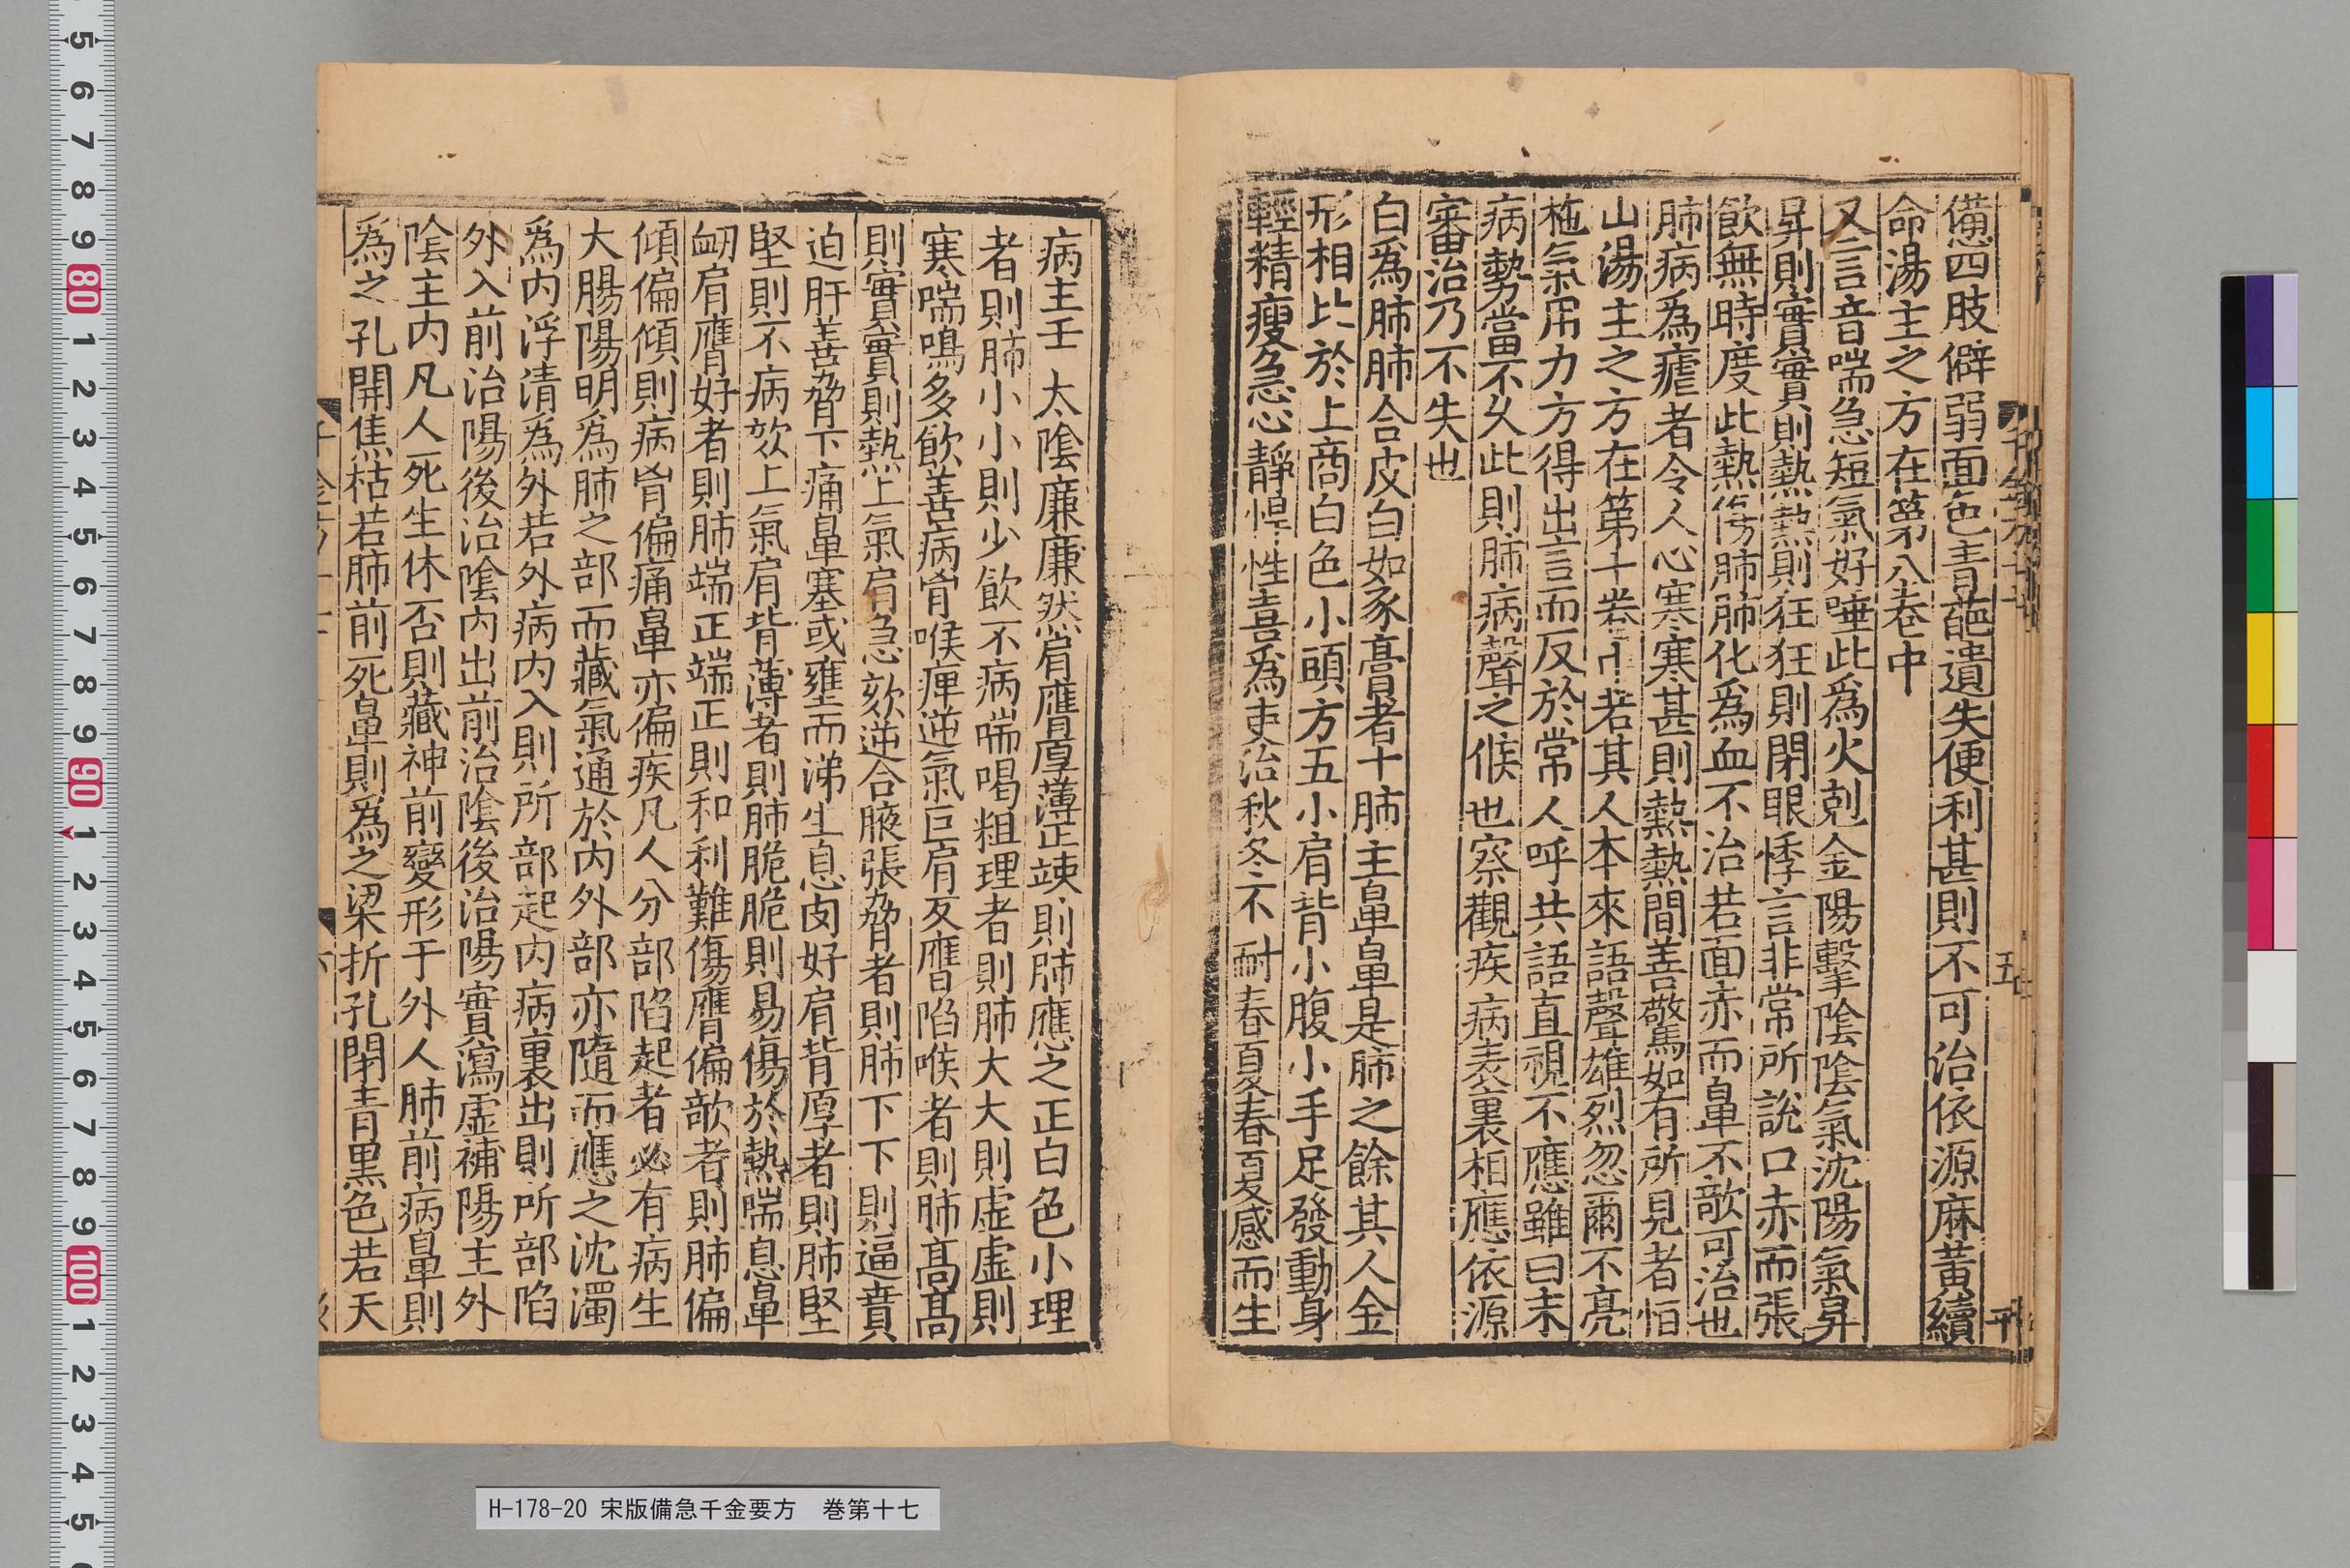 憊四肢僻弱面色青葩遺失便利甚則不可治依源麻黃續
命湯主之方在第八卷中
又言音喘急短氣好唾此爲火剋金陽擊陰陰氣沈陽氣昇
昇則實實則熱熱則狂狂則閉眼悸言非常所說口赤而張
飲無時度此熱傷肺肺化爲血不治若面赤而鼻不欹可治也
肺病爲瘧者令人心寒寒甚則熱熱間善驚如有所見者恒
山湯主之方在第十卷中若其人本來語聲雄烈忽爾不亮
柂氣用力方得出言而反於常人呼共語直視不應雖曰未
病勢當不久此則肺病聲之候也察觀疾病表裏相應依源
審治乃不失也
白爲肺肺合皮白如豕膏者十肺主鼻鼻是肺之餘其人金
形相比於上商白色小頭方五小肩背小腹小手足發動身
輕精瘦急心靜悍性喜爲吏治秋冬不耐春夏春夏感而生
病主壬 太陰廉廉然肩膺厚薄正竦則肺應之正白色小理
者則肺小小則少飲不病喘喝粗理者則肺大大則虛虛則
寒喘鳴多飲善病胷喉痺逆氣巨肩反膺陷喉者則肺髙髙
則實實則熱上氣肩急欬逆合腋張脅者則肺下下則逼賁
迫肝善脅下痛鼻塞或壅而涕生息肉好肩背厚者則肺堅
堅則不病欬上氣肩背薄者則肺脆脆則易傷於熱喘息鼻
衂肩膺好者則肺端正端正則和利難傷膺偏欹者則肺偏
傾偏傾則病胷偏痛鼻亦偏疾凡人分部陷起者必有病生
大腸陽明爲肺之部而藏氣通於內外部亦隨而應之沈濁
爲內浮清爲外若外病內入則所部起內病裏出則所部陷
外入前治陽後治陰內出前治陰後治陽實瀉虛補陽主外
陰主內凡人死生休否則藏神前變形于外人肺前病鼻則
爲之孔開焦枯若肺前死鼻則爲之梁折孔閉青黑色若天
H-178-20 宋版備急千金要方　巻第十七